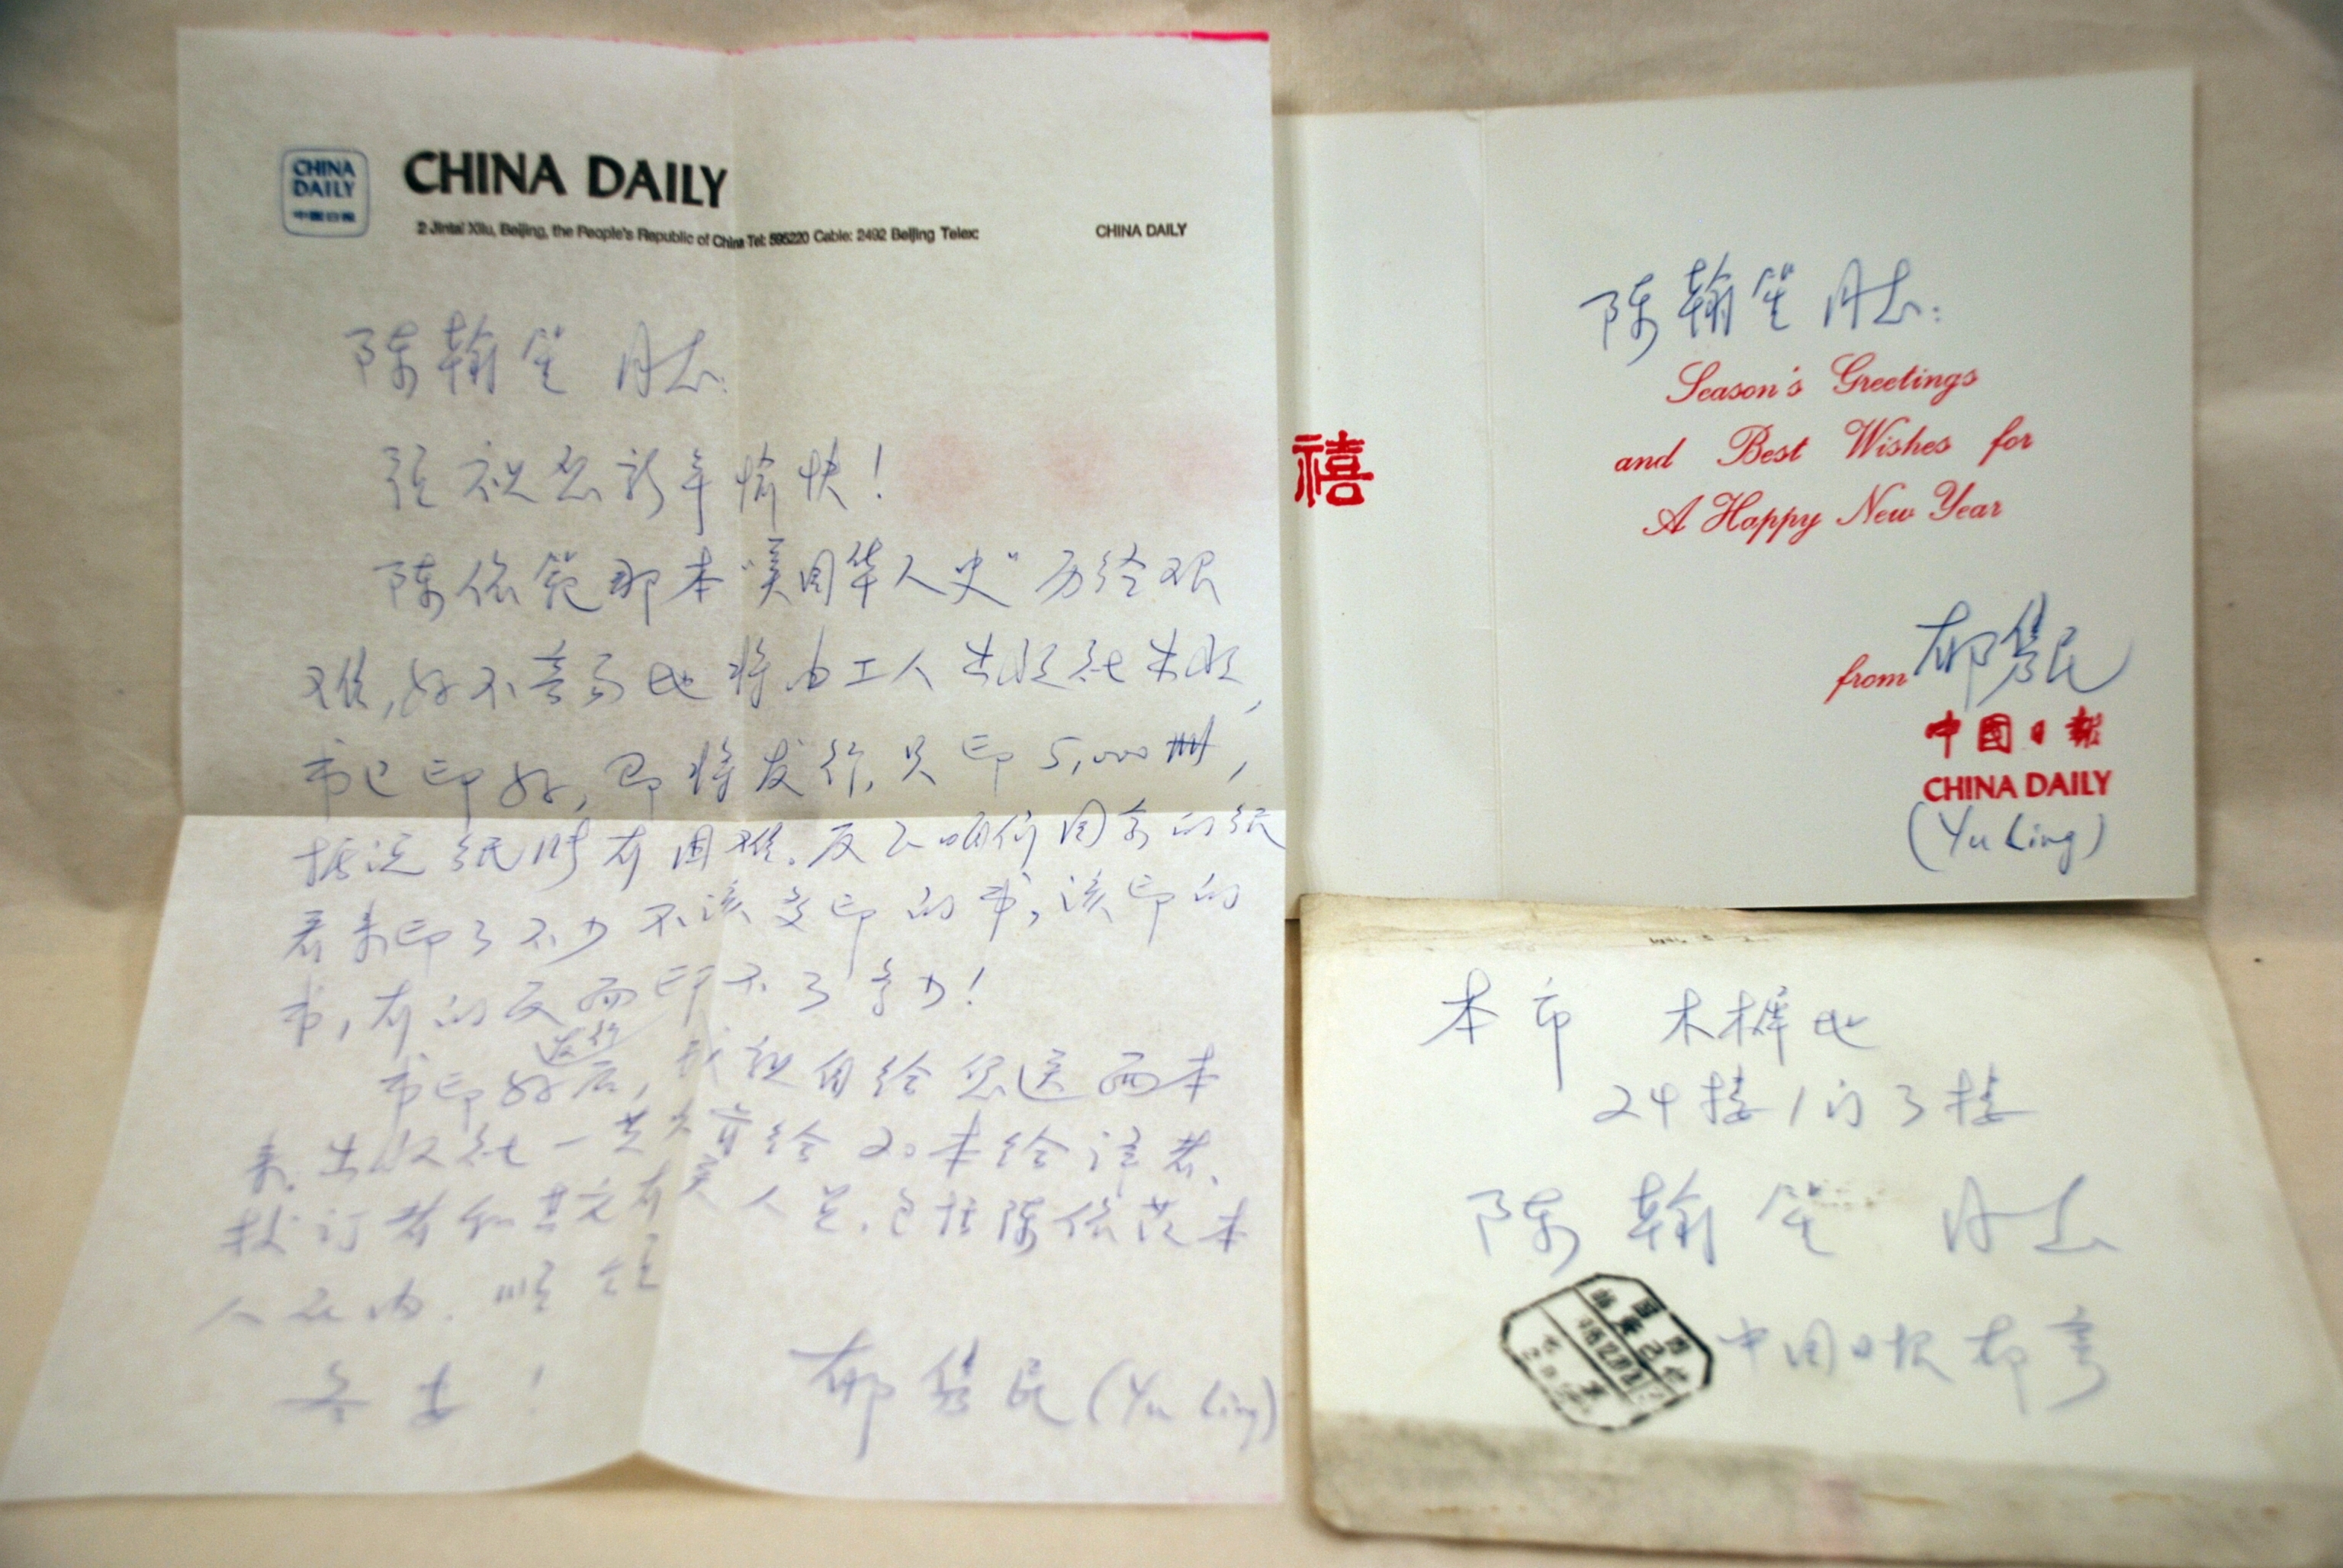 CHINA
DAILY
中國日報
CHINA DAILY
2 Jintai Xilu, Beijing, the People's Republic of China Tel: 595220 Cable: 2492 Beijing Telex: CHINA DAILY
陈翰笙同志:
谨祝您新年愉快!
陈依范那本“美国华人史”历经艰
难,好不容易地将由工人出版社出版,
书已印好,即将发行,只印5,000册,
据说纸张有困难。反正咱们国家的纸
看来印了不少不该多印的书,该印的
书,有的反而印不了多少!
书印好发行后,我就自给您送两本
来。出版社一共只肯给20本给译者、
校订者和其它有关人员,包括陈依范本
人在内。顺颂
冬安!
郁隽民(Yu Ling)
禧
陈翰笙同志:
Season's Greetings
and Best Wishes for
A Happy New Year
from 郁隽民
中國日報
CHINA DAILY
(Yu Ling)
本市 木樨地
24楼1门3楼
陈翰笙 同志
中国日报 郁